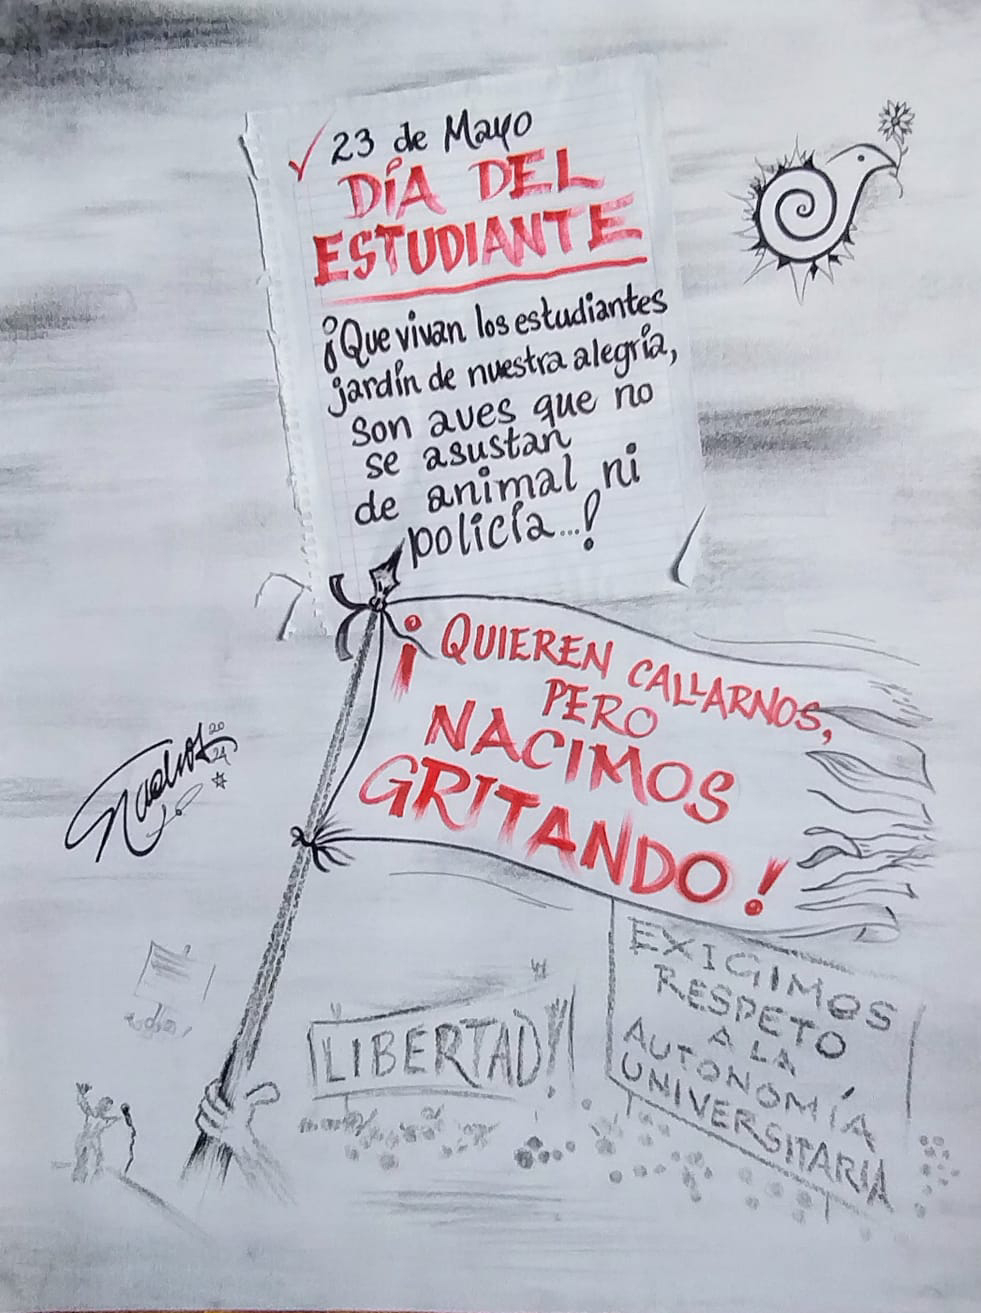 23 de Mayo
DÍA DEL
ESTUDIANTE
¡Que vivan los estudiantes
jardín de nuestra alegría,
Son aves que no
se asustan
de animal ni
policía...!
¡QUIEREN CALLARNOS,
PERO
NACIMOS
GRITANDO!
2024
¡LIBERTAD!
EXIGIMOS
RESPETO
A LA
AUTONOMÍA
UNIVERSITARIA